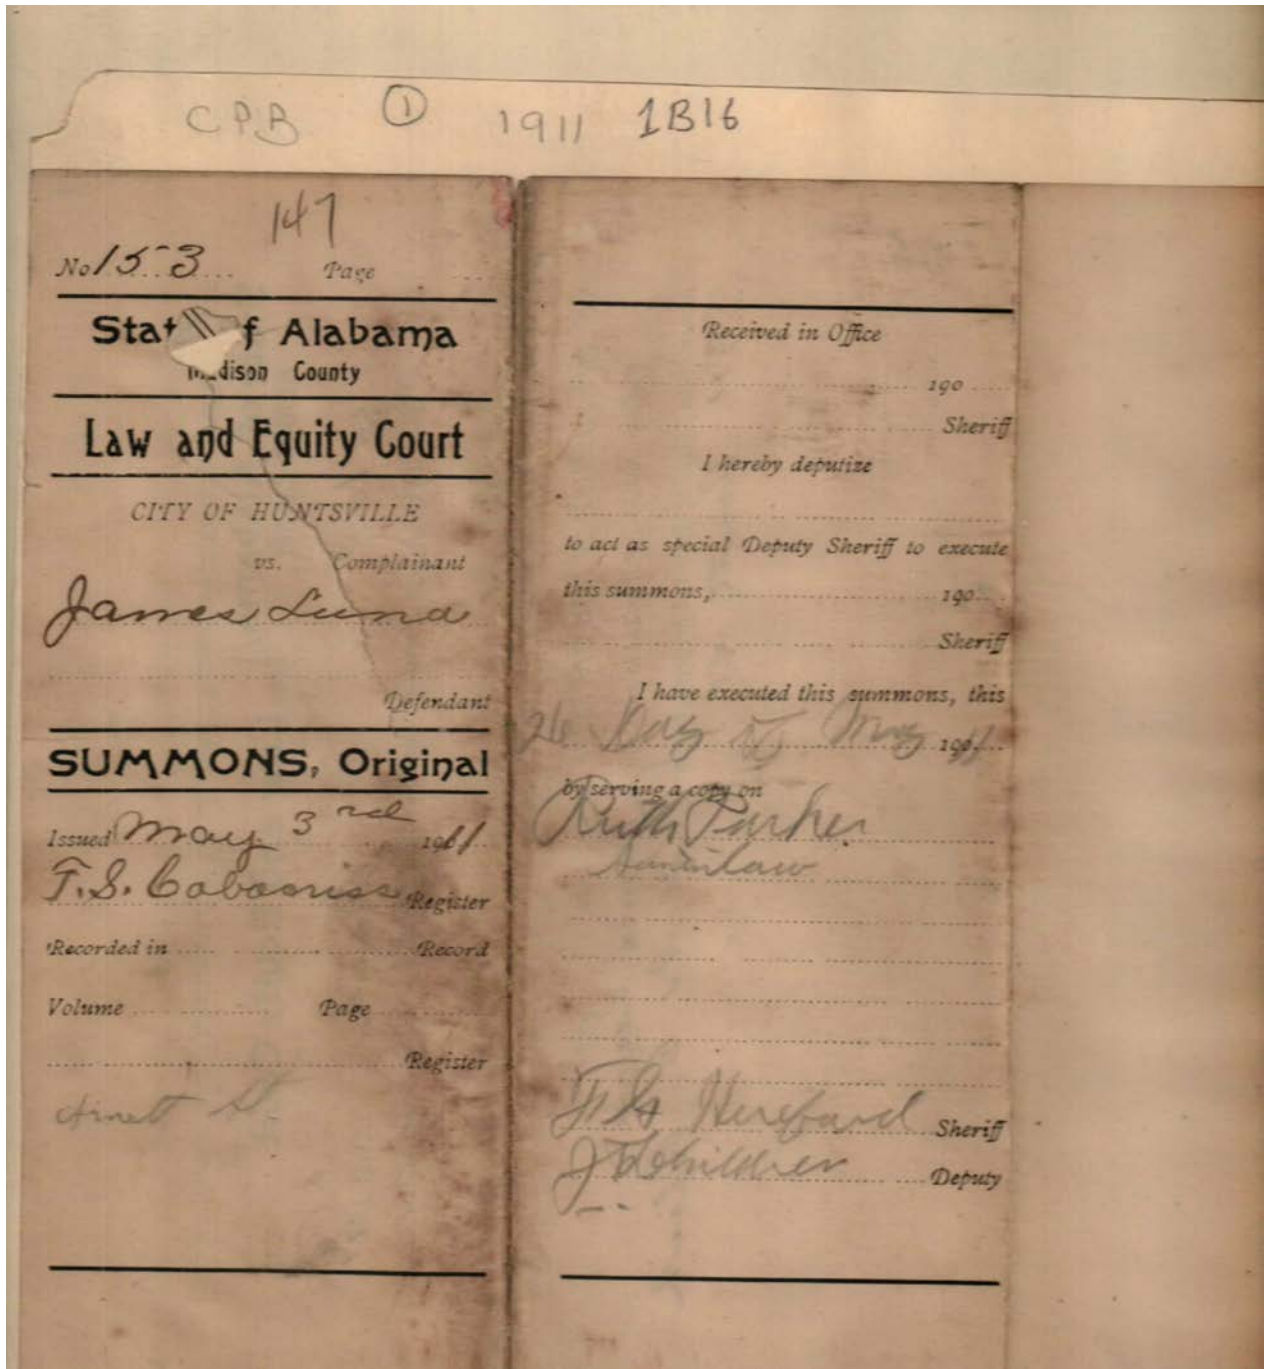 CPB ① 1911 1B16
147
No 153 Page
State of Alabama
Madison County
Law and Equity Court
CITY OF HUNTSVILLE
vs. Complainant
James Lund
Defendant
SUMMONS, Original
Issued May 3rd 1911
F.S. Cabaniss Register
Recorded in Record
Volume Page
Register
Arnett St.
Received in Office
190
Sheriff
I hereby deputize
to act as special Deputy Sheriff to execute
this summons, 190
Sheriff
I have executed this summons, this
26 Day of May 1911
by serving a copy on
Ruth Parker
Hereford Sheriff
Deputy